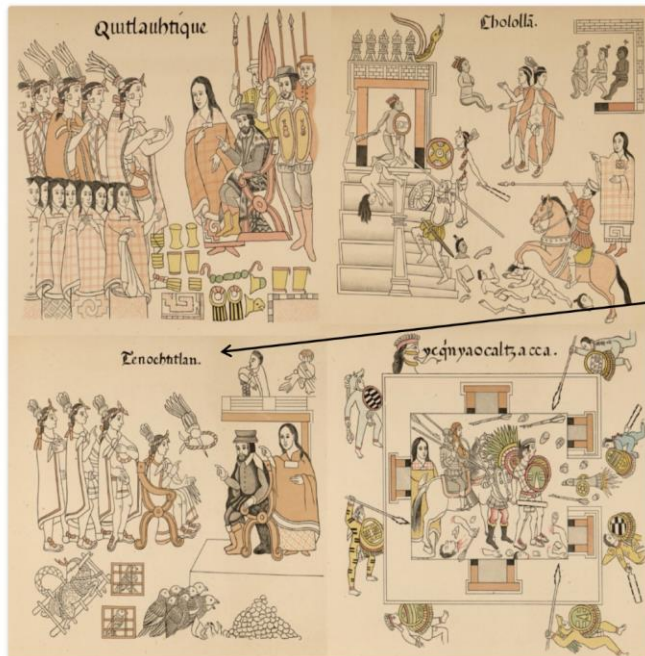 Quitlauhtique
Chololla.
Tenochtitlan.
ycq̃nyaocaltzacca.